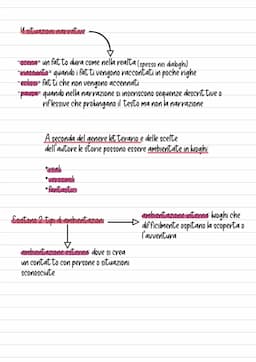 4 situazioni narrative
scena= un fatto dura come nella realtà (spesso nei dialoghi)
racconto= quando i fatti vengono raccontati in poche righe
ellissi= fatti che non vengono accennati
pausa= quando nella narrazione si inseriscono sequenze descrittive o
riflessive che prolungano il testo ma non la narrazione
A seconda del genere letterario e delle scelte
dell'autore le storie possono essere ambientate in luoghi:
•reali
•verosimili
•fantastici
Esistono 2 tipi di ambientazioni
ambientazione interna luoghi che
difficilmente ospitano la scoperta o
l'avventura
ambientazione esterna dove si crea
un contatto con persone o situazioni
sconosciute